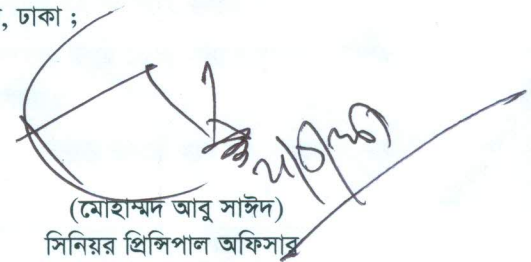 , ঢাকা ;
(মোহাম্মদ আবু সাঈদ)
সিনিয়র প্রিন্সিপাল অফিসার